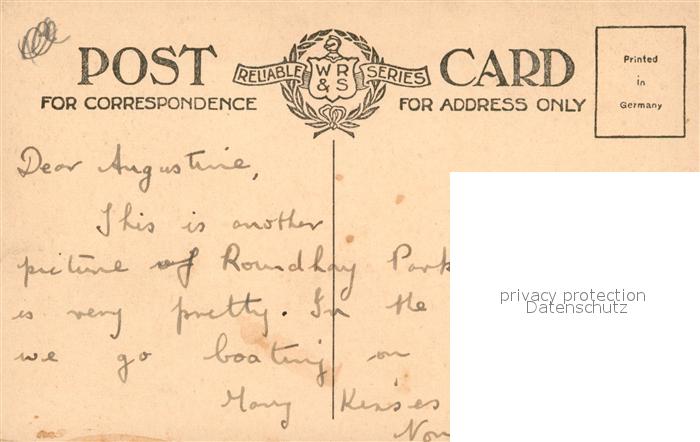 POST CARD
RELIABLE WR&S SERIES
FOR CORRESPONDENCE
FOR ADDRESS ONLY
Printed
in
Germany
Dear Augustine,
This is another
picture of Roundhay Park
is very pretty. In the
we go boating on
Many Kisses
privacy protection
Datenschutz